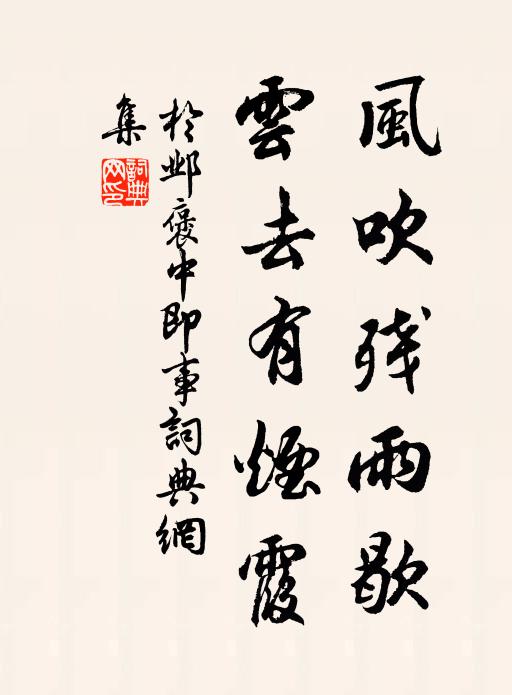 風吹残雨歇
雲去有煙霞
於邺褒中即事詞典網
集
詞典網印